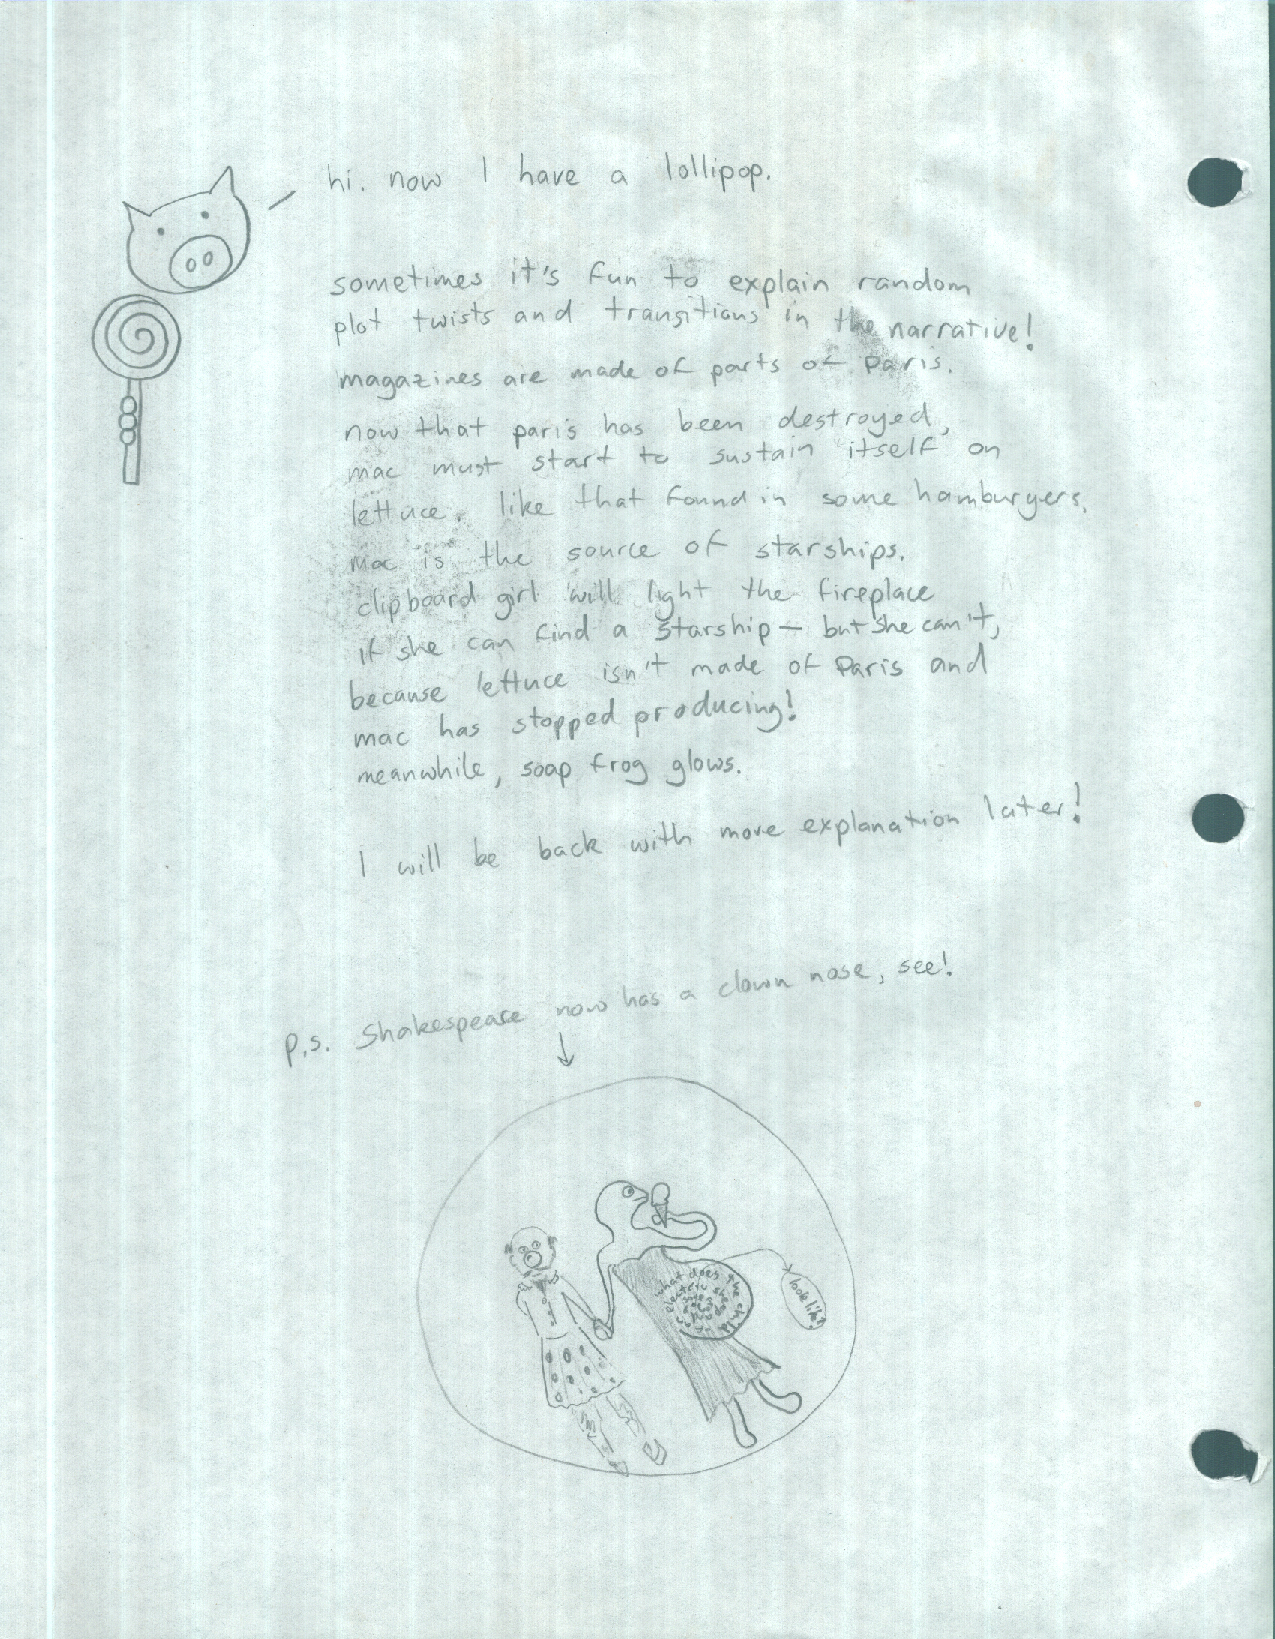 hi. now I have a lollipop.
sometimes it's fun to explain random
plot twists and transitions in the narrative!
magazines are made of parts of Paris.
now that paris has been destroyed,
mac must start to sustain itself on
lettuce. like that found in some hamburgers.
mac is the source of starships.
clipboard girl will light the fireplace
if she can find a starship – but she can't,
because lettuce isn't made of Paris and
mac has stopped producing!
meanwhile, soap frog glows.
I will be back with more explanation later!
p.s. Shakespeare now has a clown nose, see!
what does the child
look like?